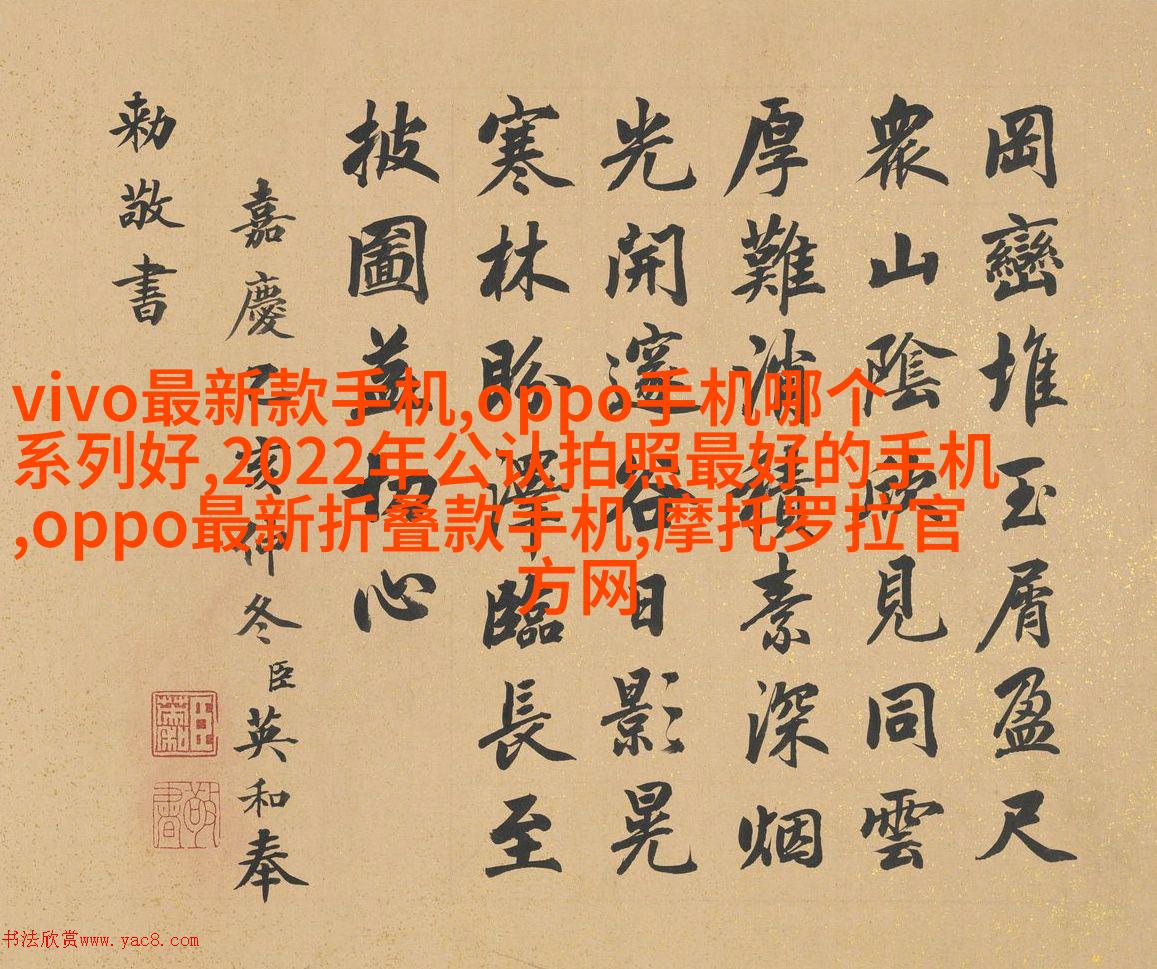 岡巒堆玉屑盈尺
衆山陰見同雲
厚難消積素深烟
光開邃谷日影晃
寒林盼澤臨長至
披圖益切心
嘉慶己仲冬臣英和奉
勅敬書
vivo最新款手机,oppo手机哪个
系列好,2022年公认拍照最好的手机
,oppo最新折叠款手机,摩托罗拉官
方网
书法欣赏www.yac8.com